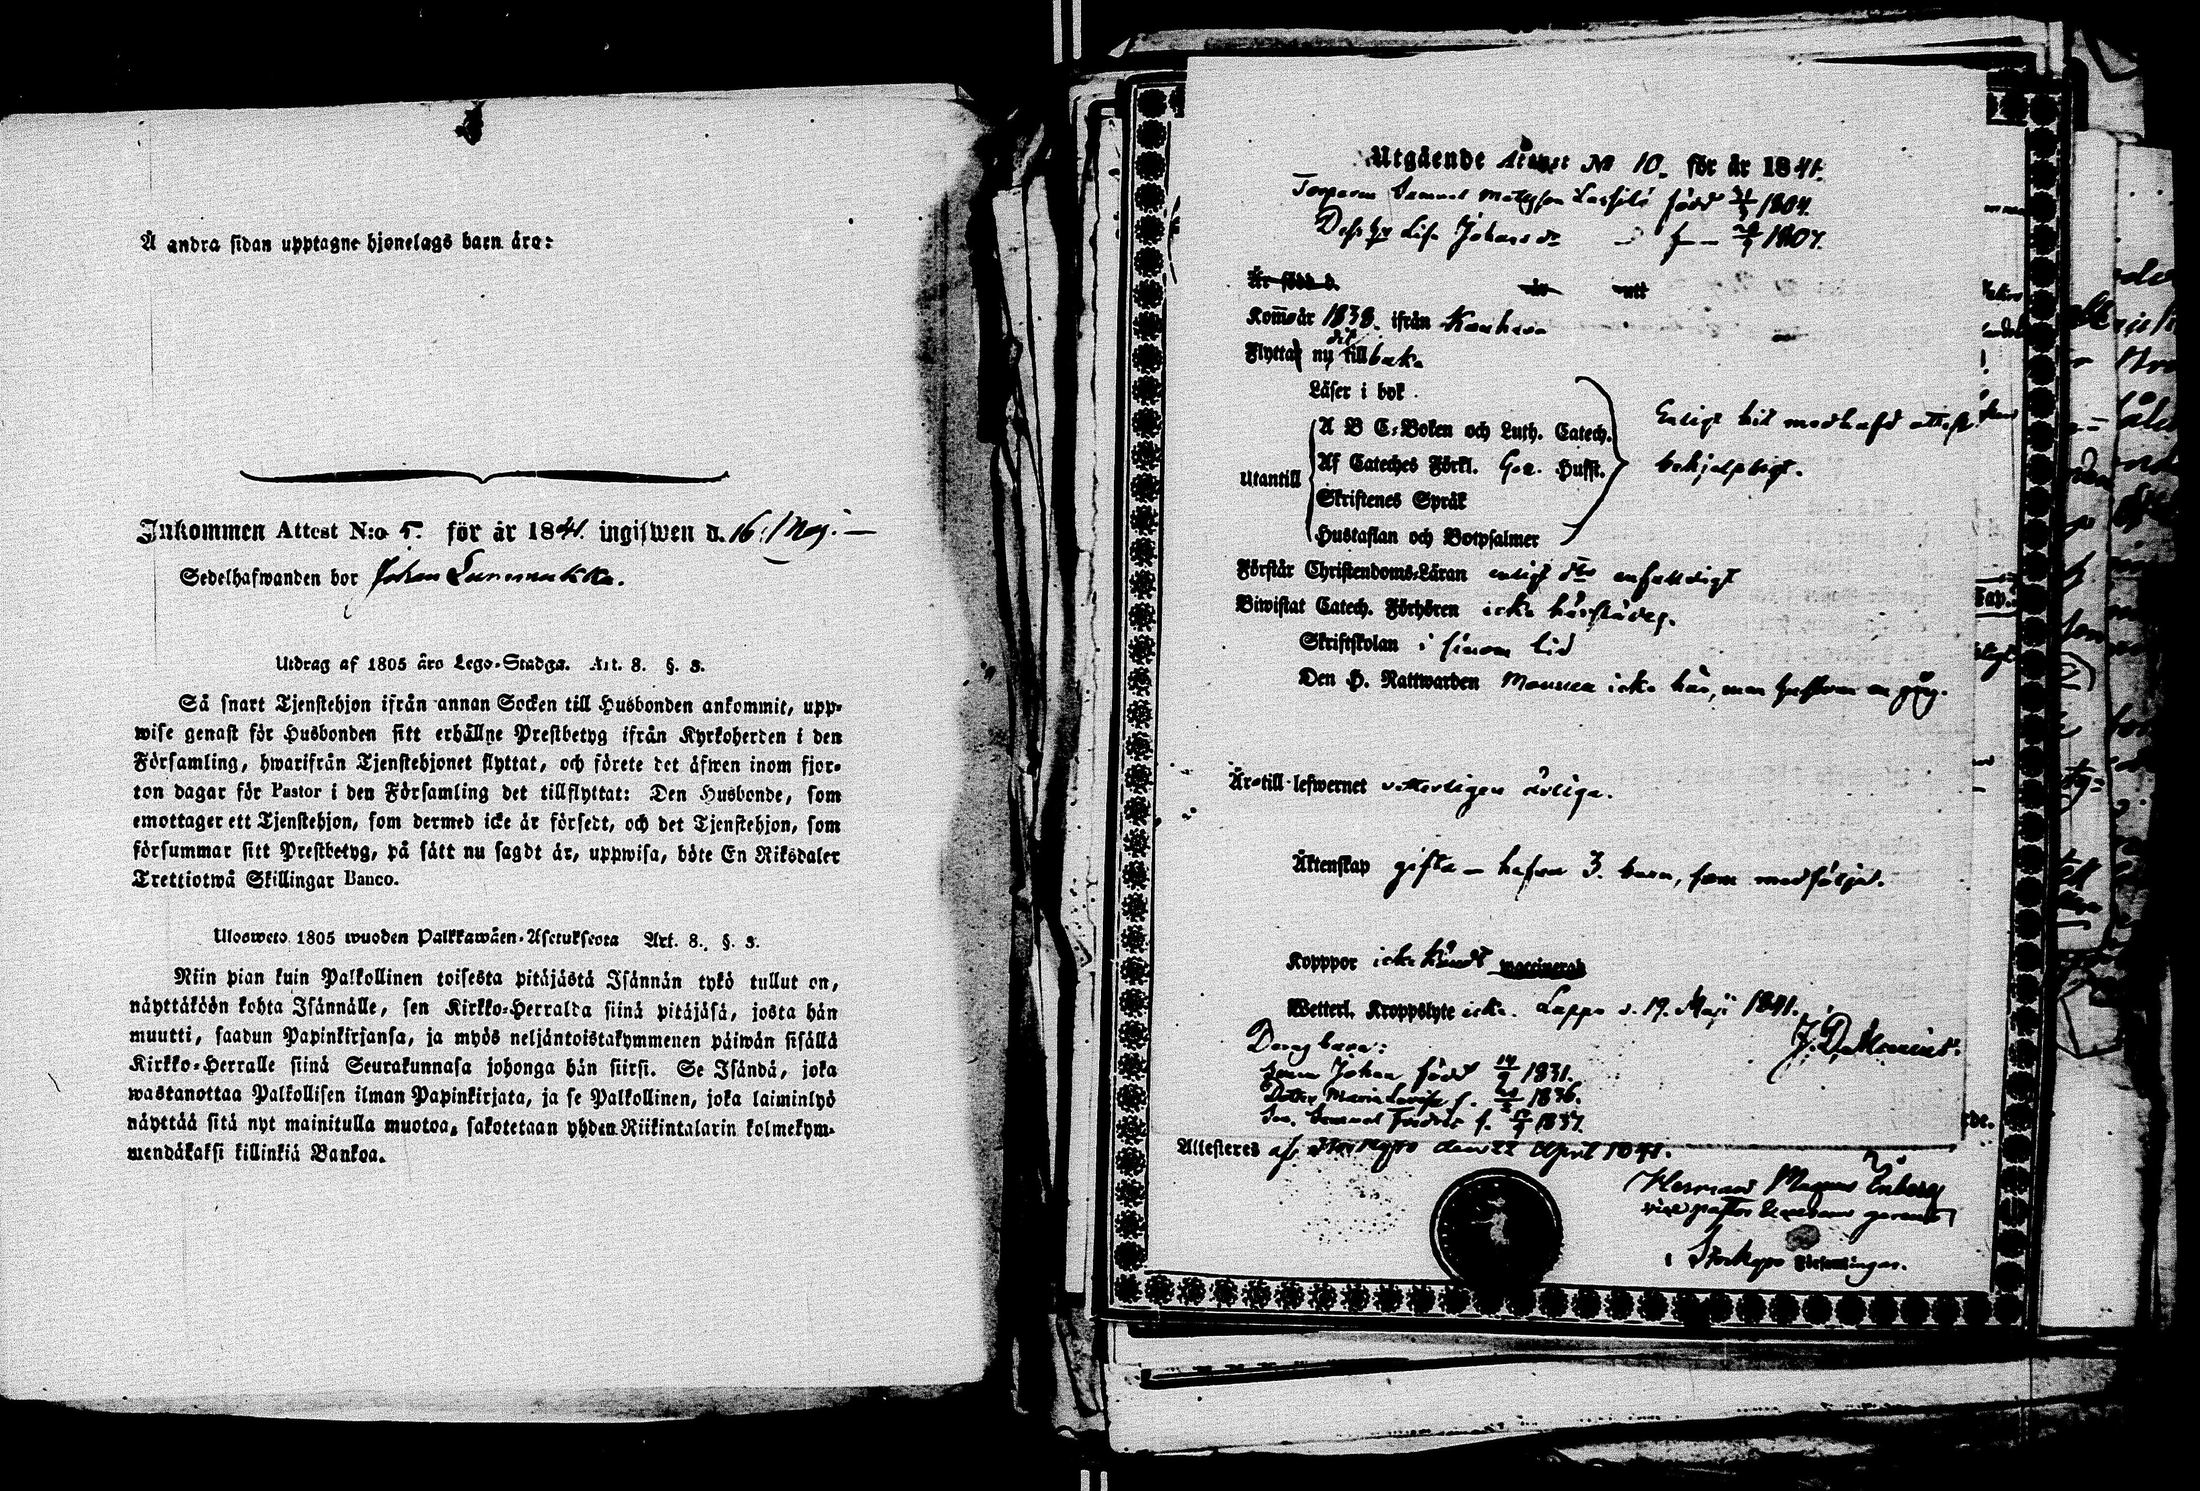 Å andra sidan upptagne hjonelags barn äro:
Inkommen Attest N:o 5. för år 1841. ingifwen d. 16. Maj. —
Sedelhafwanden bor Johan
Utdrag af 1805 års Lego-Stadga. Art. 8. §. 3.
Så snart Tjenstehjon ifrån annan Socken till Husbonden ankommit, upp-
wise genast för Husbonden sitt erhållne Prestbetyg ifrån Kyrkoherden i den
Församling, hwarifrån Tjenstehjonet flyttat, och förete det äfwen inom fjor-
ton dagar för Pastor i den Församling det tillflyttat: Den Husbonde, som
emottager ett Tjenstehjon, som dermed icke är försedt, och det Tjenstehjon, som
försummar sitt Prestbetyg, på sätt nu sagdt är, uppwisa, böte En Riksdaler
Trettiotwå Skillingar Banco.
Ulosweto 1805 wuoden Palkkawäen-Asetuksesta Art. 8. §. 3.
Niin pian kuin Palkollinen toisesta pitäjästä Isännän tykö tullut on,
näyttäköön kohta Isännälle, sen Kirkko-Herralda siinä pitäjäsä, josta hän
muutti, saadun Papinkirjansa, ja myös neljäntoistakymmenen päiwän sisällä
Kirkko-Herralle siinä Seurakunnasa johonga hän siirsi. Se Isändä, joka
wastanottaa Palkollisen ilman Papinkirjata, ja se Palkollinen, joka laiminlyö
näyttää sitä nyt mainitulla muotoa, sakotetaan yhden Riikintalarin kolmekym-
mendäkaksi killinkiä Bankoa.
Utgående Attest No 10. för år 1841.
Torparen Samuel Mattsson Lassila född 1804.
Dess hu Lisa Johansdr f. 1807.
Är född d. år uti
Kom år 1838. ifrån Kauhava
Flyttar nu dit tillbaka
Läser i bok
Utantill
A B C-Boken och Luth. Catech.
Af Cateches Förkl. Gez. Husst.
Skriftenes Språk
Hustaflan och Botpsalmer
Enligt hit medhafd attest
behjelpligt.
Förstår Christendoms-Läran enligt dito enfaldigt
Biwistat Catech. Förhören icke härstädes.
Skriftskolan i sinom tid
Den H. Nattwarden Mannen icke här, men hustrun en gång.
Är till lefwernet vetterligen ärliga.
Äktenskap gifta — hafva 3. barn, som medfölja.
Kopppor icke kändt vaccinerad
Wetterl. Kroppslyte icke. Lappo d. 19. Maji 1841.
Deras barn:
Sonen Johan född 1831.
Dottr. Maria Lovisa f. 1836.
Son. Samuel Fredric f. 1837.
Attesteres af Storkyro den 22 April 1841.
Herman Magnus Enberg
vice pastor
i Storkyro Församlingar.